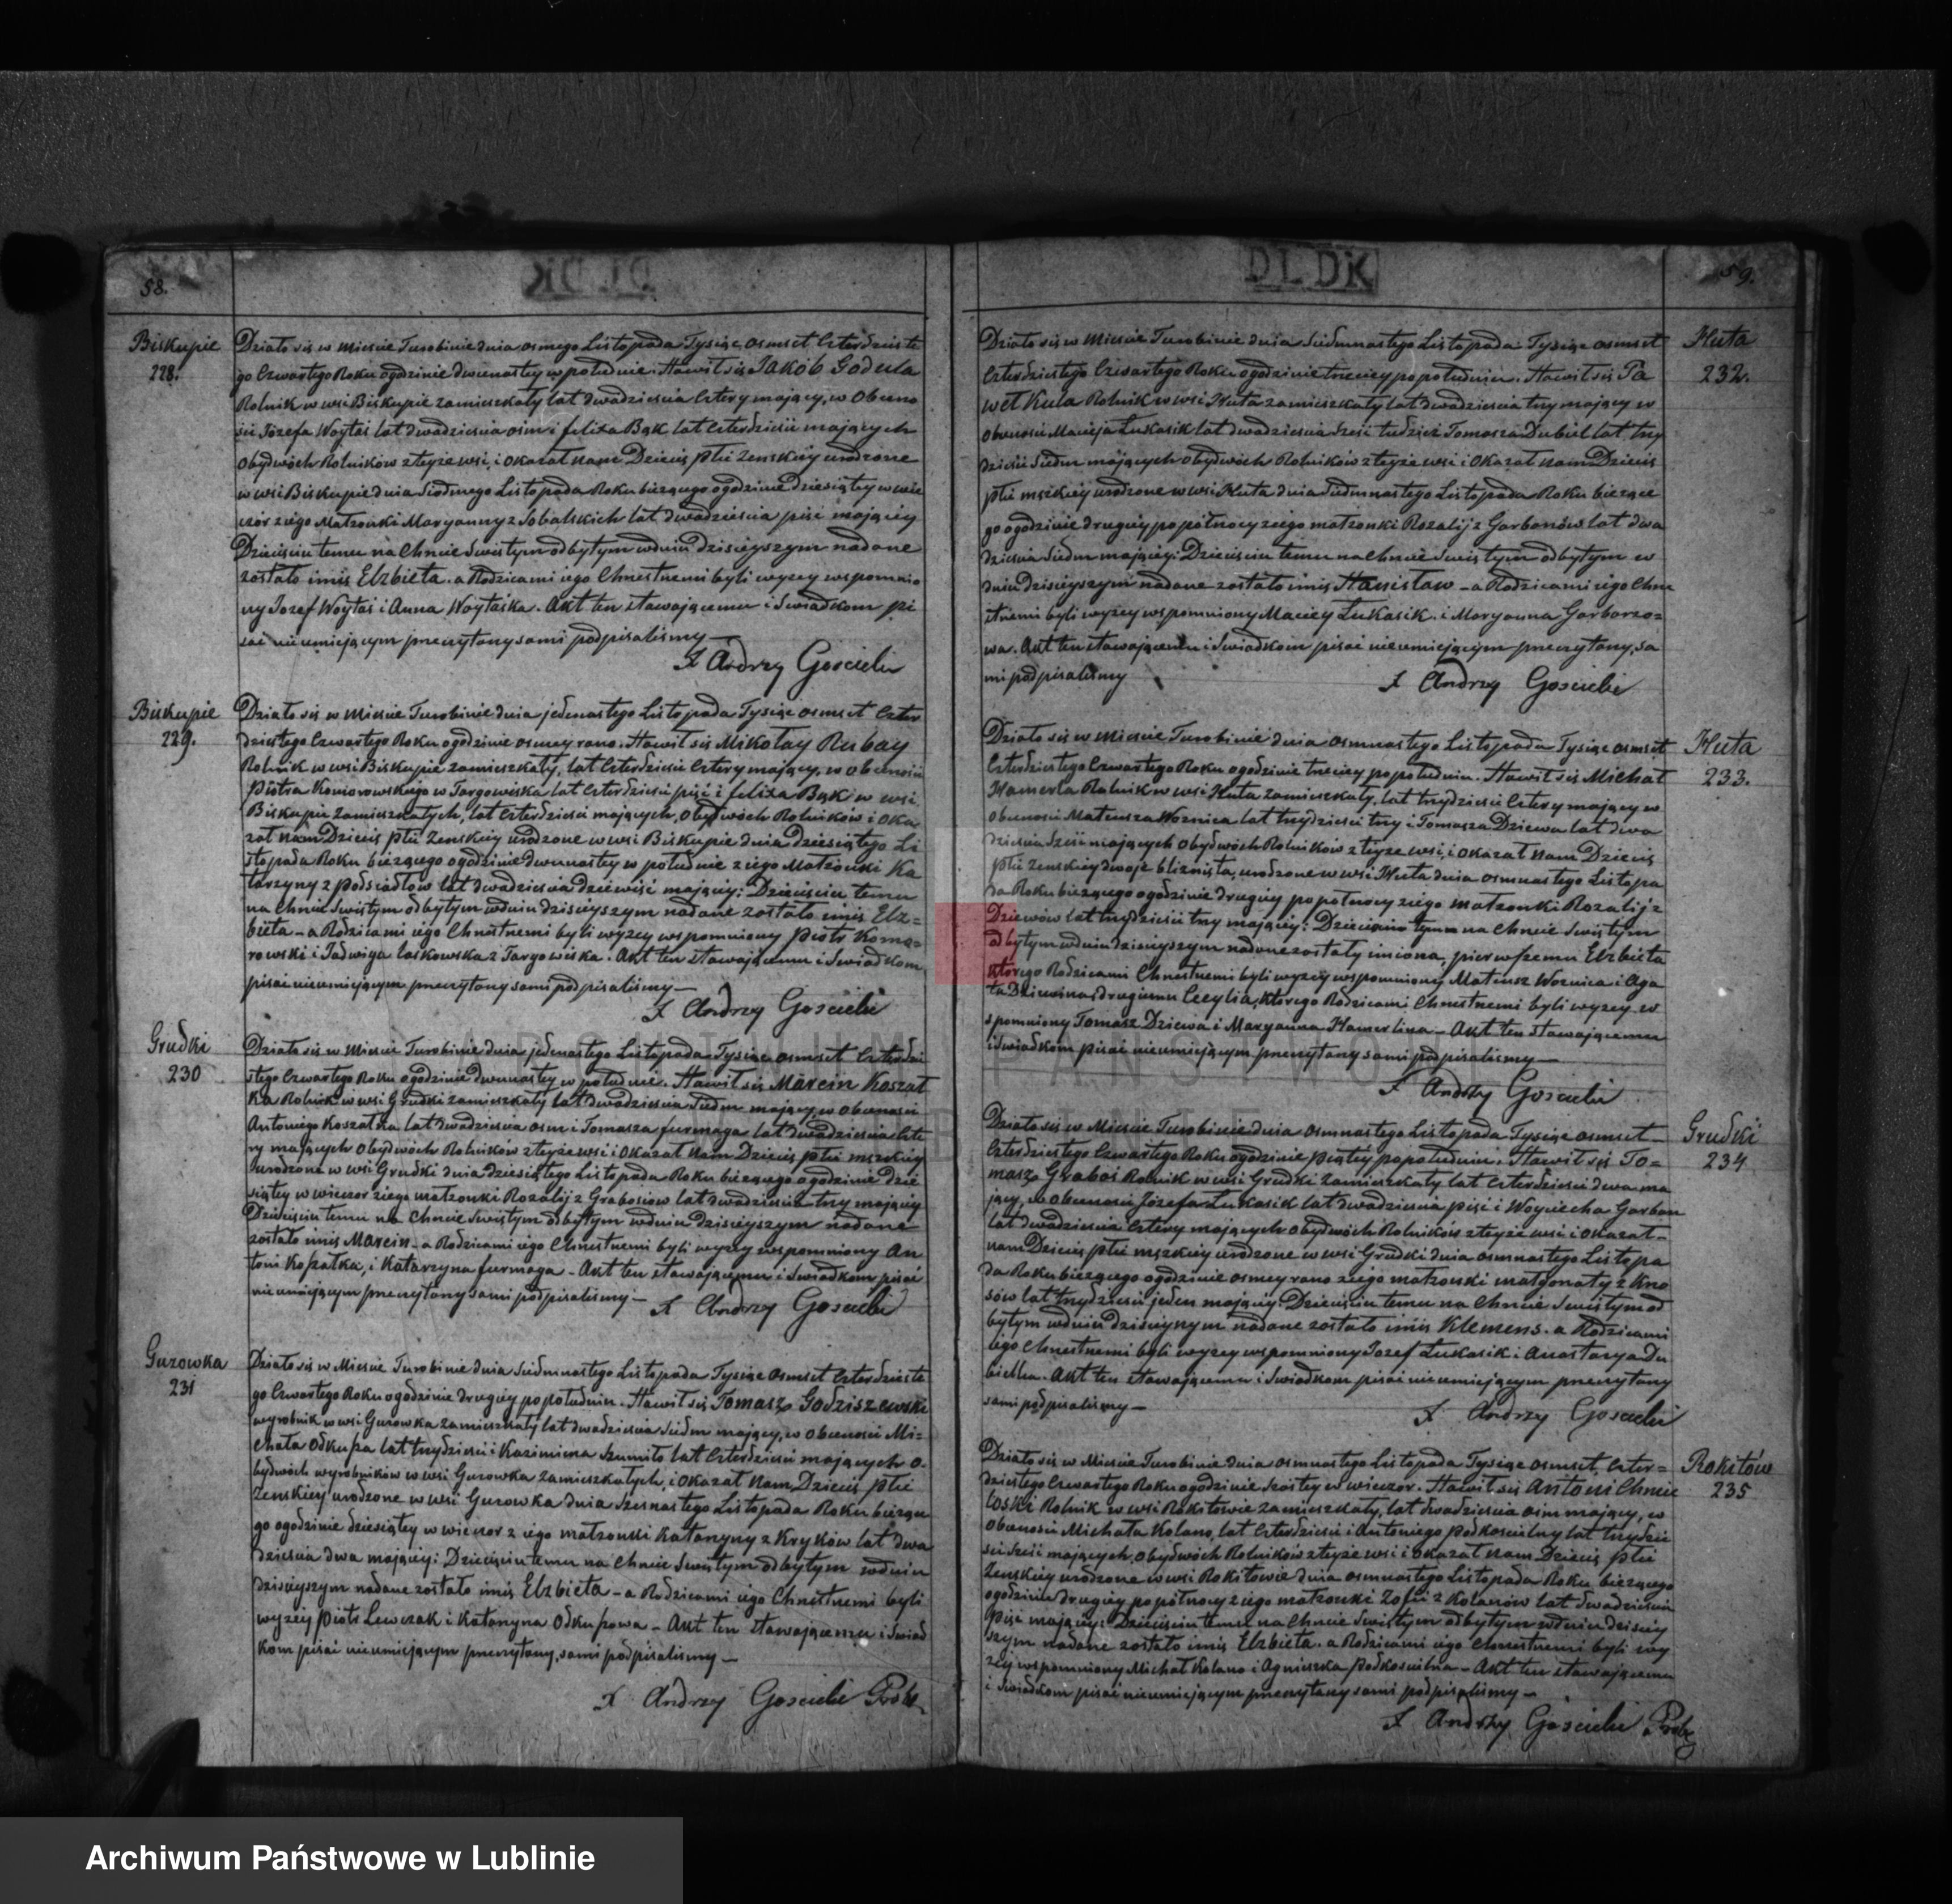 58.
DLDK
Biskupie
228.
Działo się w Mieście Turobinie dnia osmego Listopada Tysiąc osmset Czterdzieste
go Czwartego Roku ogodzinie dwunastey w południe. Stawił się Jakób Godula
Rolnik w wsi Biskupie zamieszkały lat dwadzieścia cztery maiący, w Obecno
ści Józefa Woytaś lat dwadzieścia ośm i felixa Bąk lat czterdzieści maiących
Obydwóch Rolników z teyże wsi, i okazał nam Dziecię płci Zenskiey urodzone
w wsi Biskupie dnia Siodmego Listopada Roku bieżącego ogodzinie dziesiątey w wie
czór z iego Małżonki Maryanny z Sobalskich lat dwadzieścia pięć maiącey
Dziecięciu temu na Chrzcie Swiętym odbytym w dniu dzisieyszym nadane
zostało imię Elżbieta. a Rodzicami iego Chrzestnemi byli wyzey wspomnio
ny Jozef Woytaś i Anna Woytaśka. Akt ten stawaiącemu i Swiadkom pi
sać nieumieiącym przeczytany sami podpisaliśmy —
X Andrzy Goscicki
Biskupie
229.
Działo się w Mieście Turobinie dnia jedenastego Listopada Tysiąc osmset Czter
dziestego Czwartego Roku ogodzinie osmey rano. Stawił się Mikołay Rubay
Rolnik w wsi Biskupie zamieszkały, lat Czterdzieści Cztery maiący, w obecności
Piotra Komorowskiego w Targowiska lat czterdzieści pięć i felixa Bąk w wsi
Biskupie Zamieszkałych, lat Czterdzieści maiących, Obydwóch Rolników i oka
zał nam Dziecię płci Zenskiey urodzone w wsi Biskupie dnia dziesiątego Li
stopada Roku bieżącego ogodzinie dwunastey w południe z iego Małżonki Ka
tarzyny z Podsiadłów lat dwadzieścia dziewięć maiącey: Dziecięciu temu
na Chrzcie Swiętym odbytym w dniu dzisieyszym nadane zostało imię Elz=
bieta — a Rodzicami iego Chrzestnemi byli wyzey wspomniony Piotr Komo=
rowski i Jadwiga Laskowska z Targowiska. Akt ten stawaiącemu i Swiadkom
pisać nieumieiącym przeczytany sami podpisaliśmy —
X Andrzy Goscicki
Grudki
230
Działo się w Mieście Turobinie dnia jedenastego Listopada Tysiąc osmset Czterdzie
stego Czwartego Roku ogodzinie dwunastey w południe. Stawił się Marcin Koszał
ka Rolnik w wsi Grudki zamieszkały lat dwadzieścia siedm maiący, w obecności
Antoniego Koszałka lat dwadzieścia osm i Tomasza furmaga lat dwadzieścia czte
ry maiących Obydwóch Rolników z teyże wsi i okazał nam Dziecię płci męzkiey
urodzone w wsi Grudki dnia dziesiątego Listopada Roku bieżącego ogodzinie dzie
siątey w wieczor z iego małżonki Rozalij z Grabosiow lat dwadzieścia trzy maiącey
Dziecięciu temu na Chrzcie Swiętym odbytym w dniu dzisieyszym nadane
zostało imię Marcin — a Rodzicami iego Chrzestnemi byli wyzey wspomniony An
toni Koszałka, i Katarzyna furmaga — Akt ten stawaiącemu i Swiadkom pisać
nieumieiącym przeczytany sami podpisaliśmy — X Andrzy Goscicki
Guzowka
231
Działo się w Mieście Turobinie dnia siedmnastego Listopada Tysiąc osmset Czterdzieste
go Czwartego Roku ogodzinie drugiey popołudniu. Stawił się Tomasz Godziszewski
wyrobnik w wsi Guzowka zamieszkały lat dwadzieścia siedm maiący, w Obecności Mi=
chała Odkupa lat trzydzieści i Kazimierza Szumiło lat czterdzieści maiących o.
bydwóch wyrobników w wsi Guzowka zamieszkałych, i okazał nam Dziecię płci
Zenskiey urodzone w wsi Guzowka dnia szesnastego Listopada Roku bieżące
go ogodzinie dziesiątey w wieczor z iego małżonki Katarzyny z Kryków lat dwa
dzieścia dwa maiącey: Dziecięciu temu na Chrzcie Swiętym odbytym w dniu
dzisieyszym nadane zostało imię Elżbieta — a Rodzicami iego Chrzestnemi byli
wyzey Piotr Lewczak i Katarzyna Odkupowa — Akt ten stawaiącemu i Swiad
kom pisać nieumieiącym przeczytany, sami podpisaliśmy —
X Andrzy Goscicki Prob
59.
DLDK
Huta
232.
Działo się w Mieście Turobinie dnia siedmnastego Listopada Tysiąc osmset
Czterdziestego Czwartego Roku ogodzinie trzeciey popołudniu. Stawił się Pa
weł Kula Rolnik w wsi Huta zamieszkały lat dwadzieścia trzy maiący w
Obecności Macieja Łukasik lat dwadzieścia sześć tudzież Tomasza Dubiel lat trzy
dzieści siedm maiących obydwóch Rolników z teyże wsi i okazał nam Dziecię
płci męzkiey urodzone w wsi Huta dnia siedmnastego Listopada Roku bieżące
go ogodzinie drugiey popółnocy z iego małżonki Rozalij z Garbanów lat dwa
dzieścia siedm maiącey: Dziecięciu temu na Chrzcie Swiętym odbytym w
dniu dzisieyszym nadane zostało imię Stanisław — a Rodzicami iego Chrze
stnemi byli wyzey wspomniony Maciey Łukasik. i Maryanna Garbarzo=
wa. Akt ten stawaiącemu i Swiadkom pisać nieumieiącym przeczytany, sa
mi podpisaliśmy
X Andrzy Goscicki
Huta
233.
Działo się w Mieście Turobinie dnia osmnastego Listopada Tysiąc osmset
Czterdziestego Czwartego Roku ogodzinie trzeciey popołudniu. Stawił się Michał
Hamerla Rolnik w wsi Huta zamieszkały, lat trzydzieści cztery maiący w
obecności Mateusza Woznica lat trzydzieści trzy i Tomasza Dziewa lat dwa
dzieścia sześć maiących Obydwóch Rolników z teyże wsi, i okazał nam Dziecię
płci Zenskiey dwoje bliznięta, urodzone w wsi Huta dnia osmnastego Listopa
da Roku bieżącego ogodzinie drugiey popołnocy z iego małżonki Rozalij z
Dziewów lat trzydzieści trzy maiącey: na Chrzcie Swiętym
odbytym w dniu dzisieyszym nadane zostały imiona, pierwszemu Elżbieta
którego Rodzicami Chrzestnemi byli wyzey wspomniony Mateusz Woznica i Aga
ta Dziewina drugiemu Cecylia, którego Rodzicami Chrzestnemi byli wyzey w
spomniony Tomasz Dziewa i Maryanna Hamerlina — Akt ten stawaiącemu
i Swiadkom pisać nieumieiącym przeczytany sami podpisaliśmy —
X Andrzy Goscicki
Grudki
234
Działo się w Mieście Turobinie dnia osmnastego Listopada Tysiąc osmset
Czterdziestego Czwartego Roku ogodzinie piątey popołudniu. Stawił się To=
masz Graboś Rolnik w wsi Grudki zamieszkały lat czterdzieści dwa ma
jący, w obecności Józefa Łukasik lat dwadzieścia pięć i Woyciecha Garban
lat dwadzieścia cztery maiących obydwóch Rolników z teyże wsi i okazał
nam Dziecię płci męzkiey urodzone w wsi Grudki dnia osmnastego Listopa
da Roku bieżącego ogodzinie osmey rano z iego małżonki małgorzaty z Kno
sów lat trzydzieści jeden maiącey: Dziecięciu temu na Chrzcie Swiętym od
bytym w dniu dzisieyszym nadane zostało imię Klemens. a Rodzicami
iego Chrzestnemi byli wyzey wspomniony Jozef Łukasik i Anastazya Du
bielka. Akt ten stawaiącemu i Swiadkom pisać nieumieiącym przeczytany
sami podpisaliśmy —
X Andrzy Goscicki
Rokitów
235
Działo się w Mieście Turobinie dnia osmnastego Listopada Tysiąc osmset, Czter=
dziestego Czwartego Roku ogodzinie szóstey w wieczor. Stawił się Antoni Chmie
loski Rolnik w wsi Rokitowie zamieszkały, lat dwadzieścia osm maiący, w
Obecności Michała Kolano, lat czterdzieści i Antoniego Podkościelny lat trzydzie
ści sześć maiących, obydwóch Rolników z teyże wsi i okazał nam Dziecię płci
Zenskiey urodzone w wsi Rokitowie dnia osmnastego Listopada Roku bieżącego
ogodzinie drugiey popółnocy z iego małżonki Zofii z Kolanów lat dwadzieścia
pięć maiącey: Dziecięciu temu na Chrzcie Swiętym odbytym w dniu dzisiey
szym nadane zostało imię Elżbieta. a Rodzicami iego Chrzestnemi byli wy
zey wspomniony Michał Kolano i Agnieszka Podkościelna — Akt ten stawaiącemu
i Swiadkom pisać nieumieiącym przeczytany sami podpisaliśmy —
X Andrzy Goscicki Prob
ARCHIWUM
PAŃSTWOWE
W LUBLINIE
Archiwum Państwowe w Lublinie